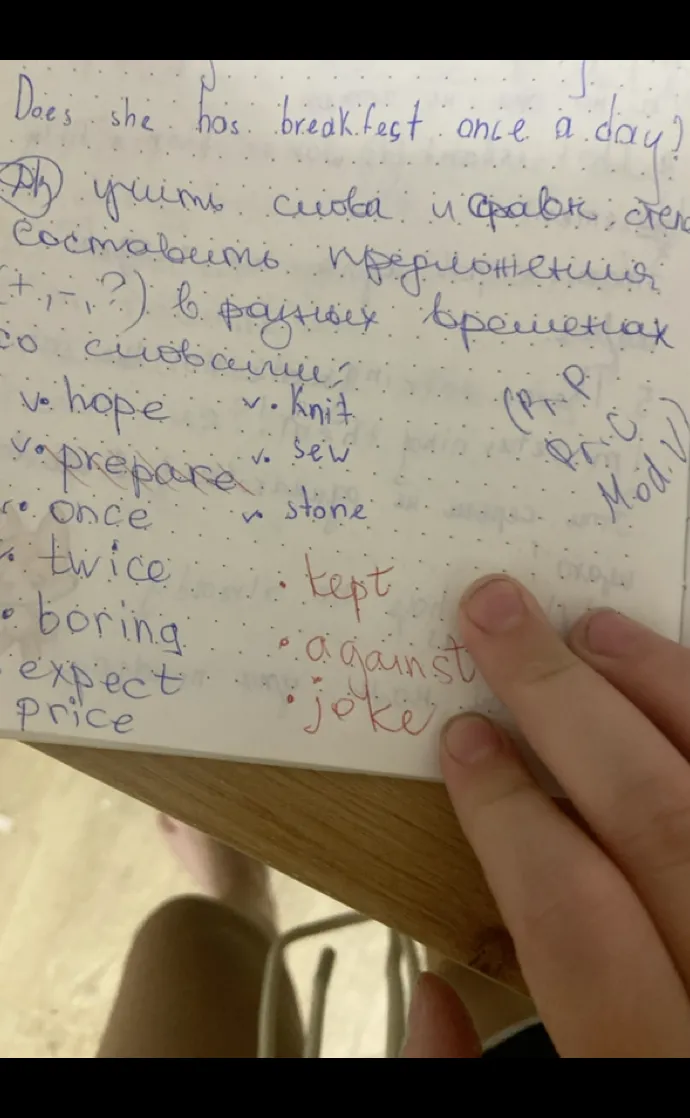 Does she has breakfest once a day?
Дз учить слова и сравн. степ
составить предложения
(+, -, ?) в разных временах
со словами:
hope
prepare
once
twice
boring
expect
price
knit
sew
stone
kept
against
joke
(Pr. P.
Pr. C.
Mod. V)